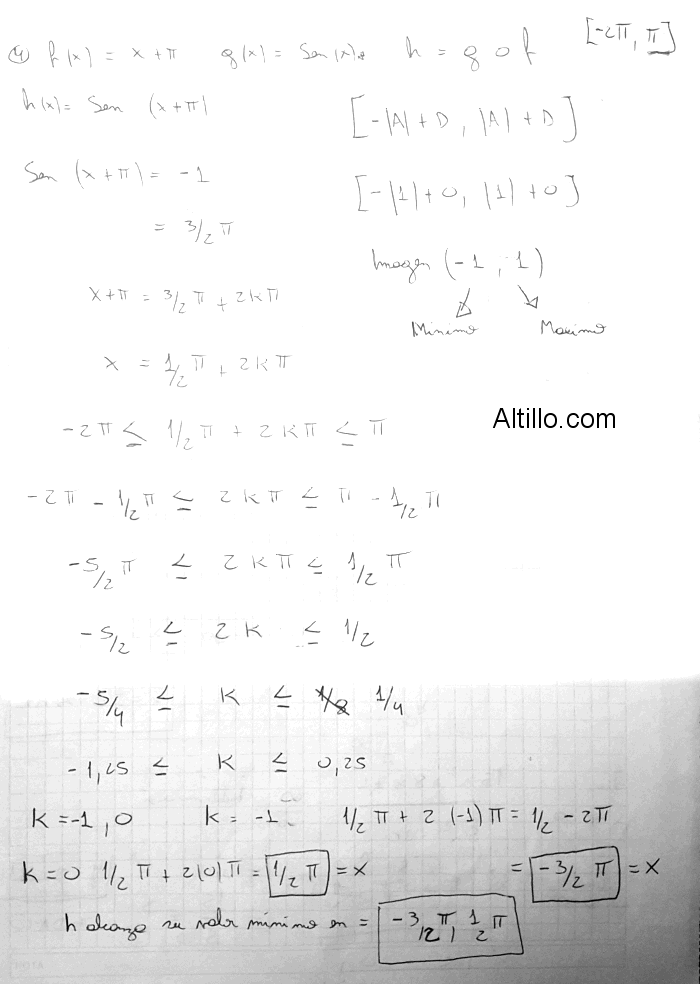 4) f(x) = x + π g(x) = Sen(x). h = g o f [-2π, π]
h(x) = Sen (x+π) [-|A| + D, |A| + D]
Sen (x+π) = -1 [-|1| + 0, |1| + 0]
= 3/2 π
Imagen (-1, 1)
x+π = 3/2 π + 2kπ
Minimo Maximo
x = 1/2 π + 2kπ
-2π ≤ 1/2 π + 2kπ ≤ π
Altillo.com
-2π - 1/2 π ≤ 2kπ ≤ π - 1/2 π
-5/2 π ≤ 2kπ ≤ 1/2 π
-5/2 ≤ 2k ≤ 1/2
-5/4 ≤ k ≤ 1/4
-1,25 ≤ k ≤ 0,25
k = -1, 0 k = -1 1/2 π + 2 (-1) π = 1/2 - 2π
k = 0 1/2 π + 2(0) π = 1/2 π = x = -3/2 π = x
h alcanza su valor minimo en = -3/2 π, 1/2 π